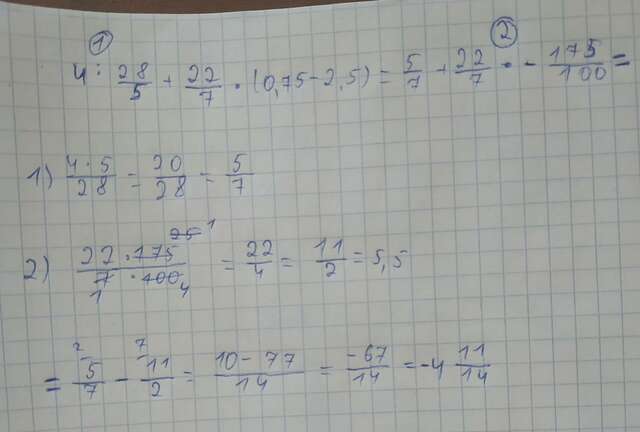 ① ②
4 : 28/5 + 22/7 · (0,75 - 2,5) = 5/7 + 22/7 · - 175/100 =
1) 4·5/28 = 20/28 = 5/7
2) 22·175 25 1/7·100 1 4 = 22/4 = 11/2 = 5,5
= 2 5/7 - 7 11/2 = 10 - 77/14 = -67/14 = -4 11/14